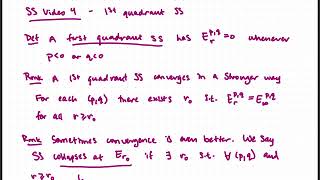 SS Video 4 - 1st quadrant SS
Def A first quadrant SS has E_r^{p,q} = 0 whenever
p<0 or q<0
Rmk A 1st quadrant SS converges in a stronger way
For each (p,q) there exists r_0 s.t. E_r^{p,q} = E_∞^{p,q}
for all r≥r_0
Rmk Sometimes convergence is even better. We say
SS collapses at E_{r_0} if ∃ r_0 s.t. ∀(p,q) and
r≥r_0